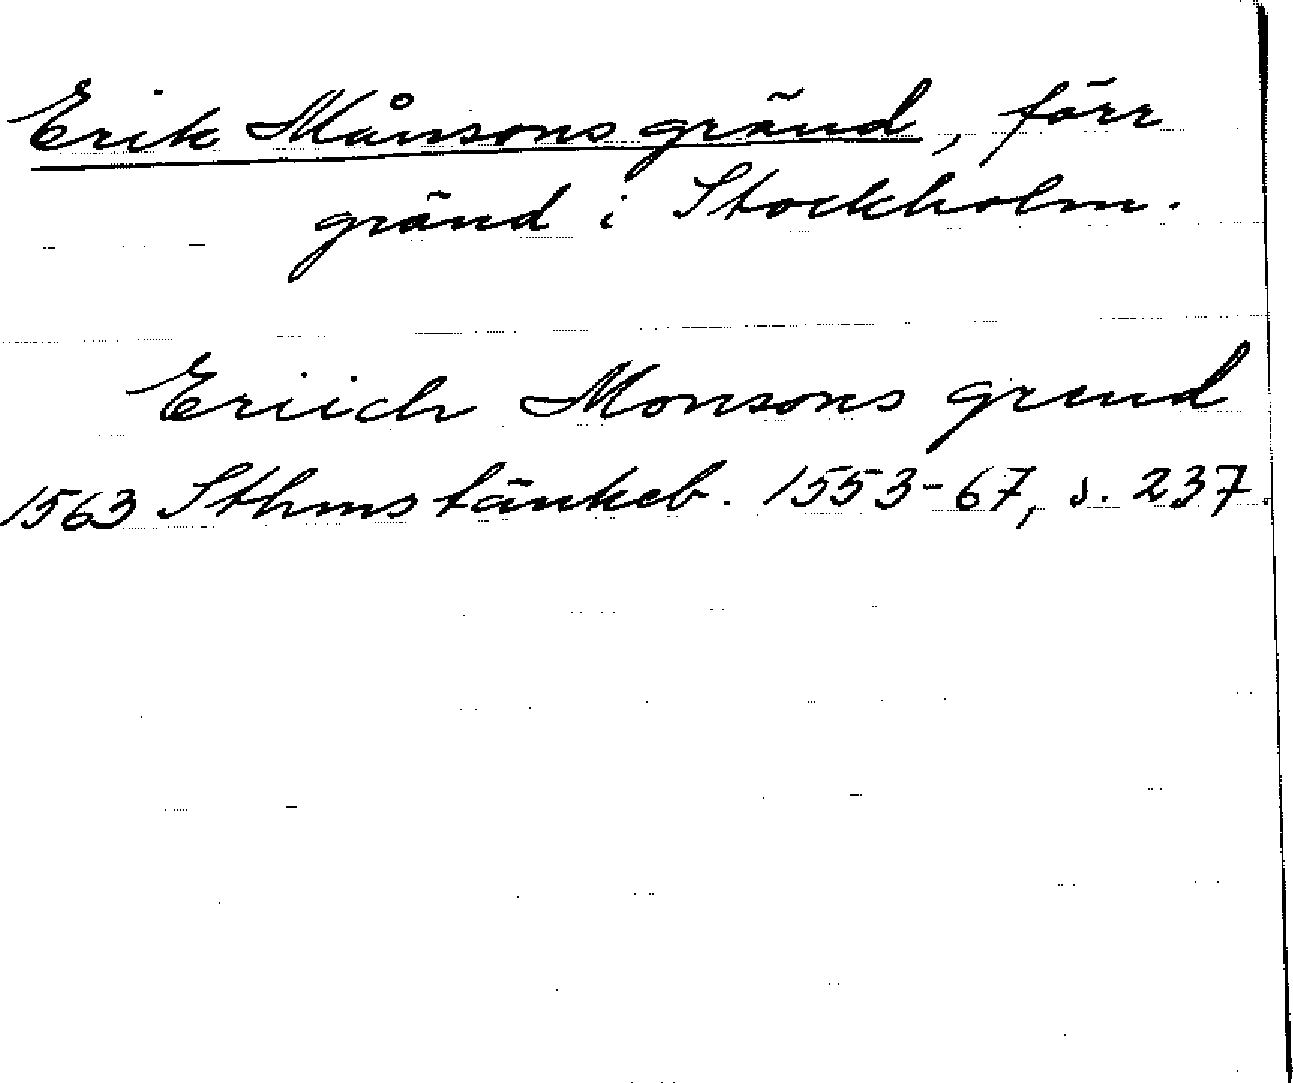 Erik Månsons gränd, förr
gränd i Stockholm.
Eriich Monsons grend
1563 Sthms tänkeb. 1553-67, s. 237.